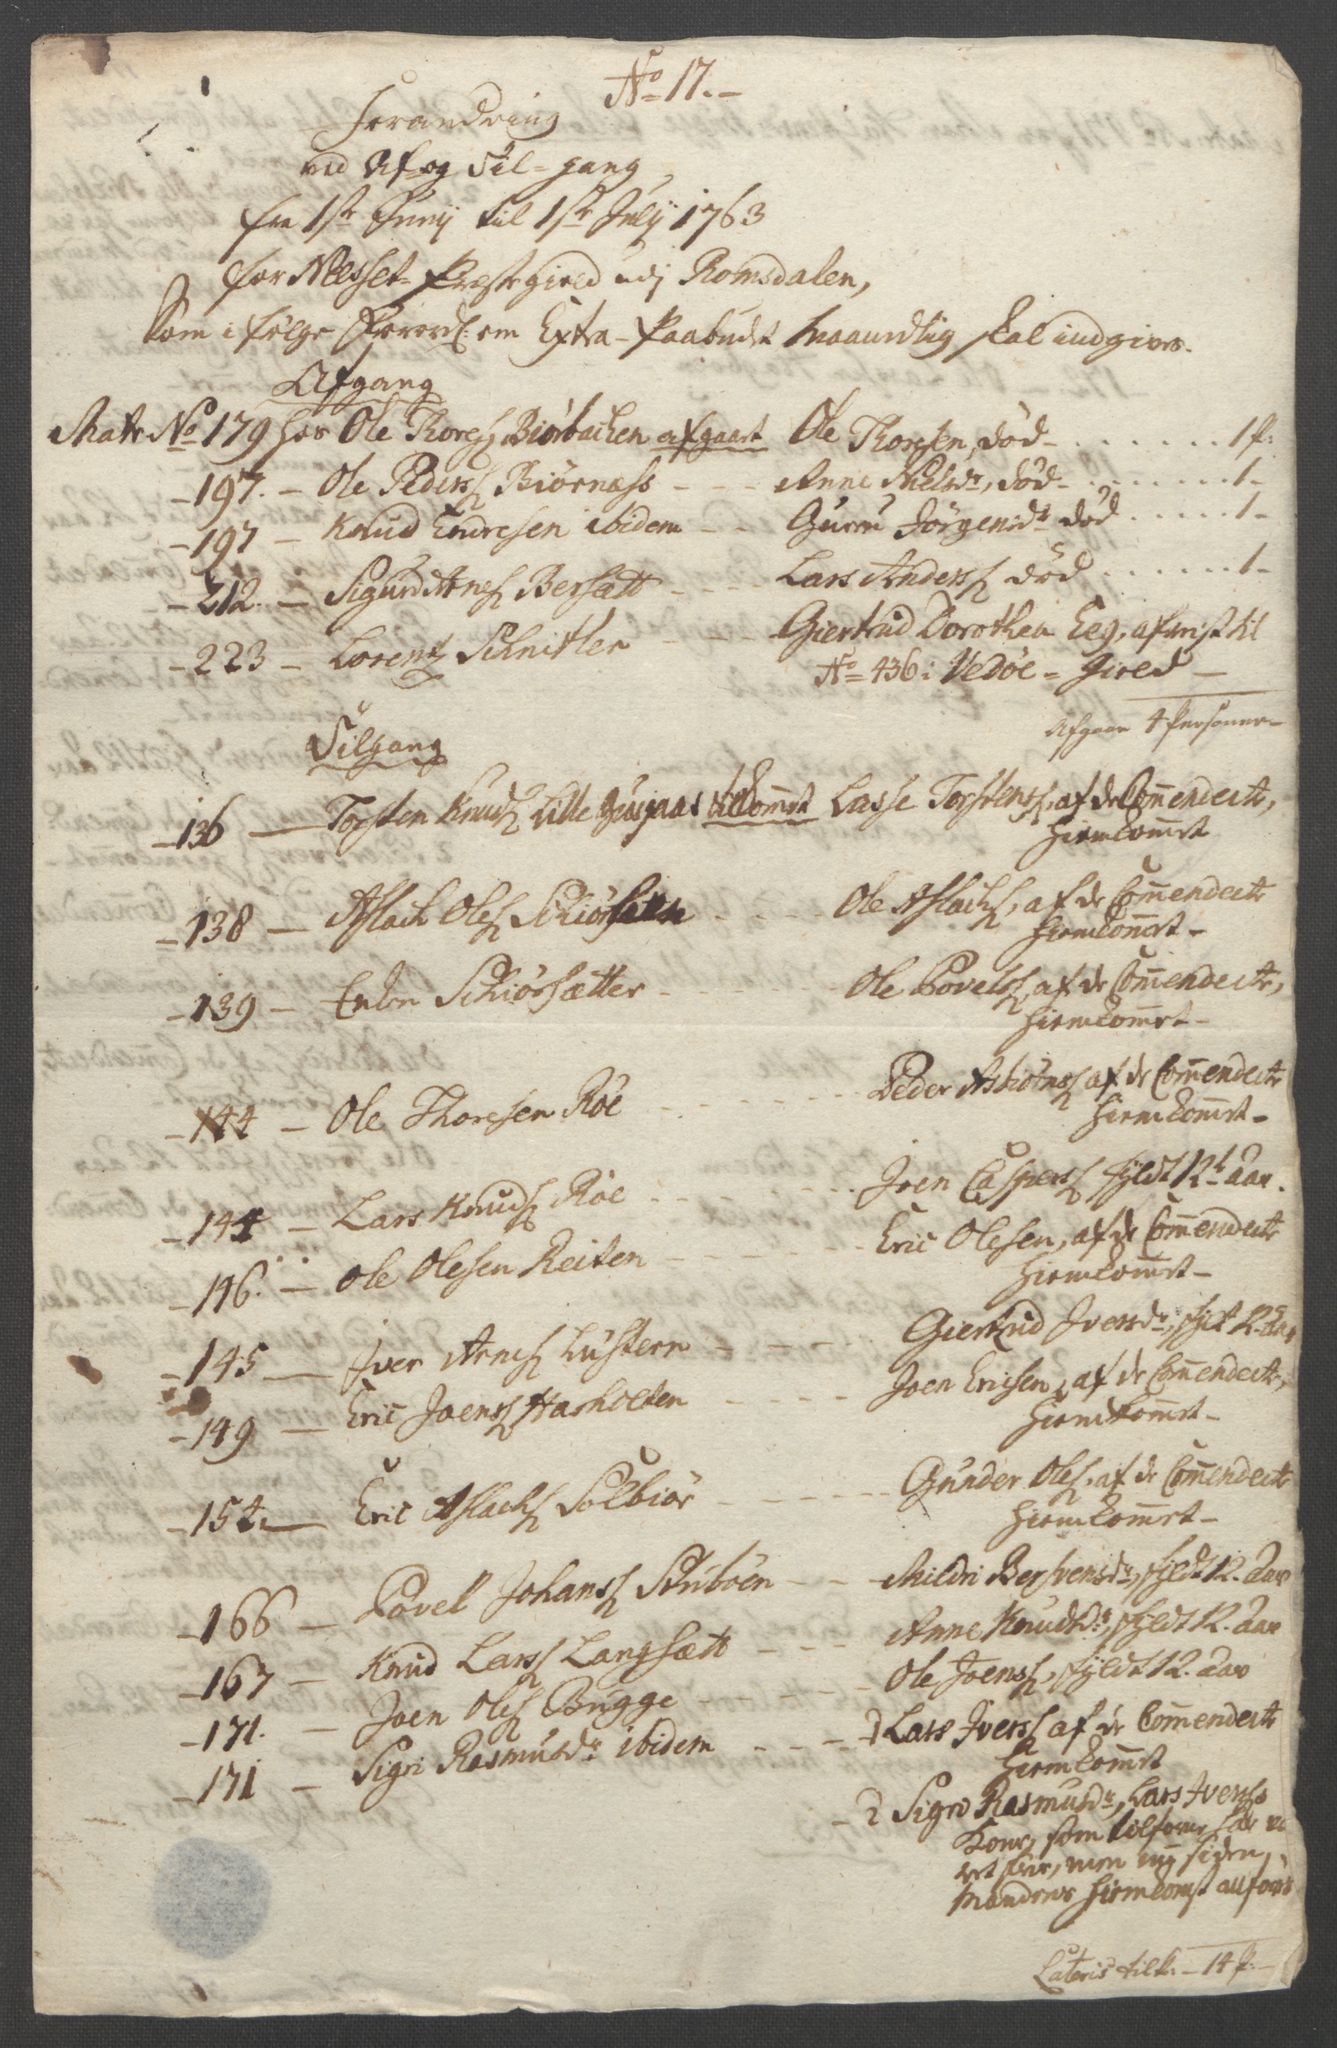 No 17.-
Forandring
ved Af- og Til-gang,
fra 1ste Junij til 1ste Julij 1763
for Nesset-Præstegield udj Romsdalen,
Som i følge Forord: om Extra-Paabudet maanedlig skal indgives.
Afgang
Matr No 179 hos Ole Thores: Biörbachen afgaaet Ole Thoresen, död - 1 p:
- 197. - Ole Peders: Biörnæss - Anne Nielsdr, död - 1 -
- 197 - Knud Endresen ibidem - Guru Jörgensdr död - 1 -
- 212. - Sigurd Arnes: Bersætt - Lars Anders: död - 1 -
- 223 - Lorentz Schnitler - Giertrud Dorothea Eeg, afreist til
No 436 i Vedöe-Gield -
Afgaar 4 Personer -
Tilgang
- 136 - Torsten Knuds: Lille tilkommet Lasse Torstens:, af de Commenderte,
hiemkommet
- 138 - Aslach Oles: Schiörsætter - Ole Aslachs:, af de Commenderte
hiemkommet -
- 139 - Enken Schiörsætter - Ole Povels:, af de Commenderte,
hiemkommet -
- 144 - Ole Thoresen Röe - Peder Asbiörns: af de Commenderte
hiemkommet -
- 144 - Lars Knuds: Röe - Joen Caspers: fyldt 12t Aar.
- 146. - Ole Olesen Reiten - Eric Olesen, af de Commenderte
hiemkommet -
- 145 - Iver Arnes: - Giertrud Iversdr, fyldt 12. Aar
- 149 - Eric Joens: Hasholten - Joen Ericsen, af de Commenderte,
hiemkommet -
- 154. - Eric Aslachs: Solbiör - Gunder Oles:, af de Commenderte
hiemkommet -
- 166 - Povel Johans: - Mildri Bersvensdr, fyldt 12. Aar
- 167 - Knud Lars: Langsætt - Anne Knudsdr, fyldt 12. Aar
- 171. - Joen Oles: Bugge - Ole Joens:, fyldt 12. Aar
- 171 - Sigri Rasmusdr ibidem - 1 Lars Ivers: af de Commenderte
hiemkommet
- 2 Sigri Rasmusdr, Lars Iverss:
Kone, som tilforn har væ
ret frie, men nu siden,
Mandens hiemkomst anføres
Lateris tilk: - 14 p: -